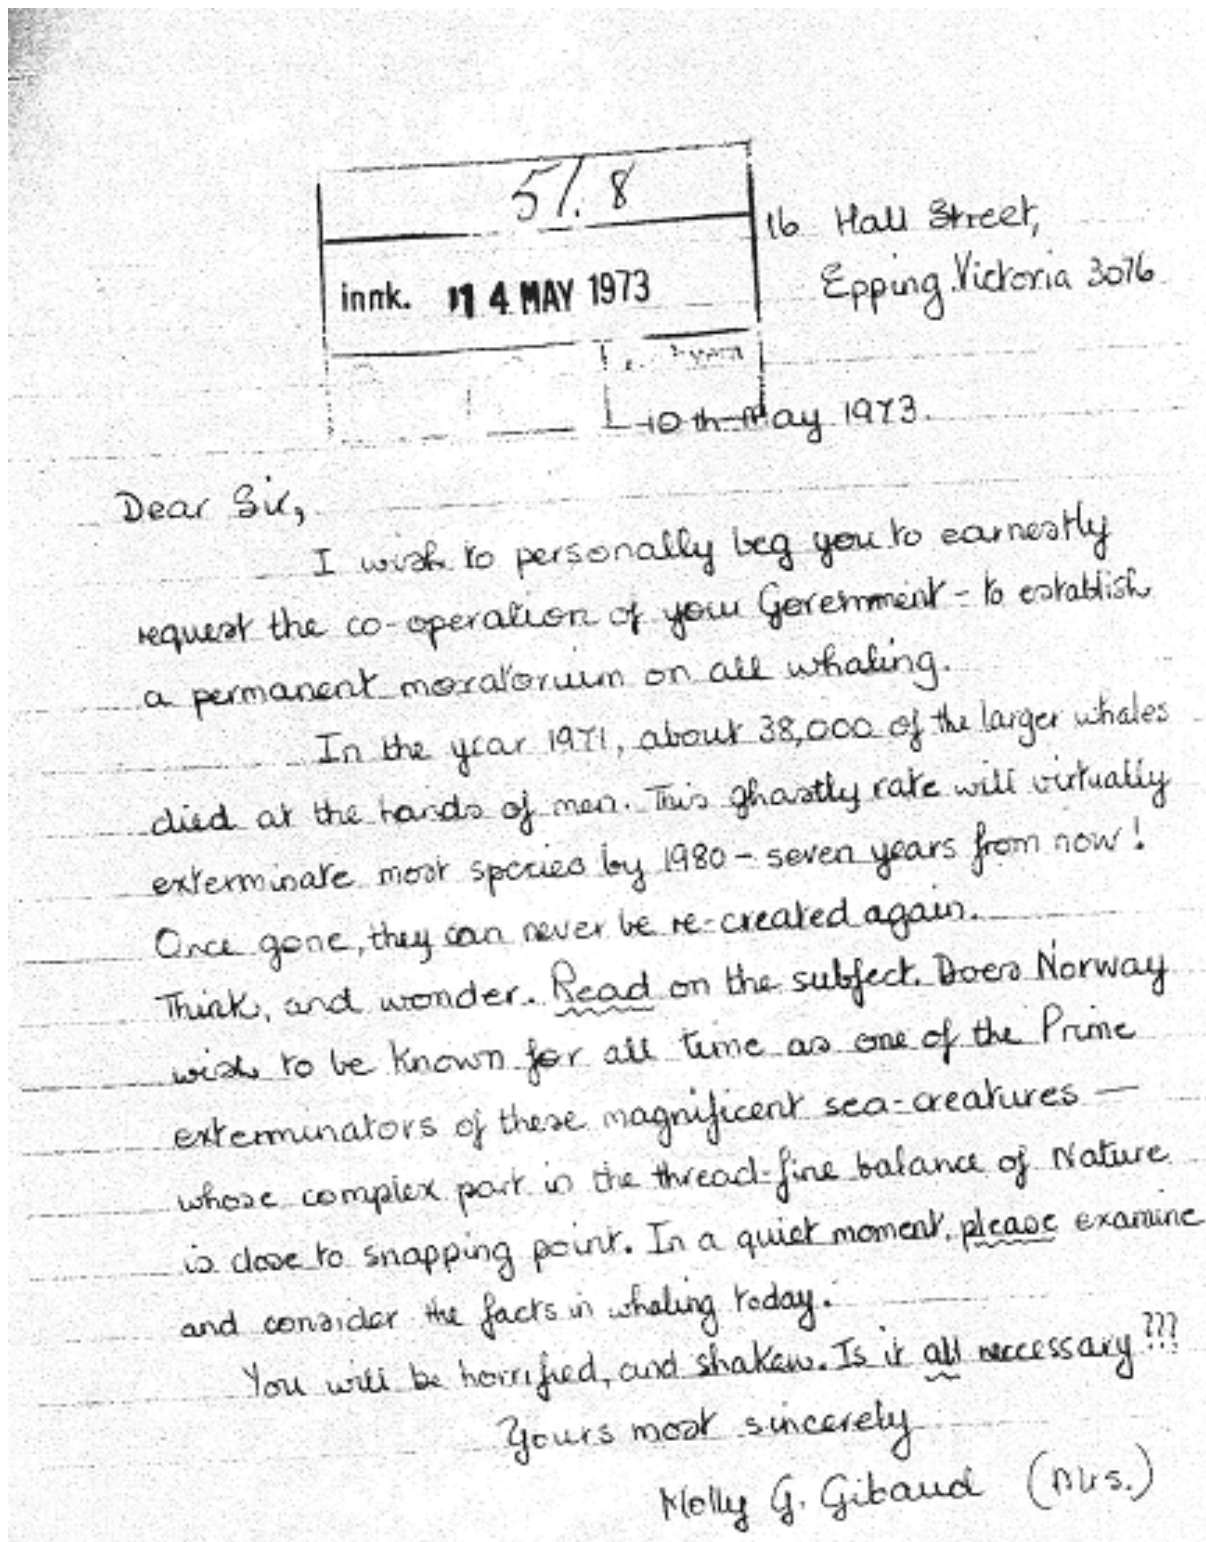 51.8
16 Hall Street,
innk. 14 MAY 1973
Epping Victoria 3076
10th May 1973.
Dear Sir,
I wish to personally beg you to earnestly
request the co-operation of your Government - to establish
a permanent moratorium on all whaling.
In the year 1971, about 38,000 of the larger whales
died at the hands of men. This ghastly rate will virtually
exterminate most species by 1980 - seven years from now!
Once gone, they can never be re-created again.
Think, and wonder. Read on the subject. Does Norway
wish to be known for all time as one of the Prime
exterminators of these magnificent sea-creatures —
whose complex part in the thread-fine balance of Nature
is close to snapping point. In a quiet moment, please examine
and consider the facts in whaling today.
You will be horrified, and shaken. Is it all necessary???
Yours most sincerely
Molly G. Gibaud (Mrs.)